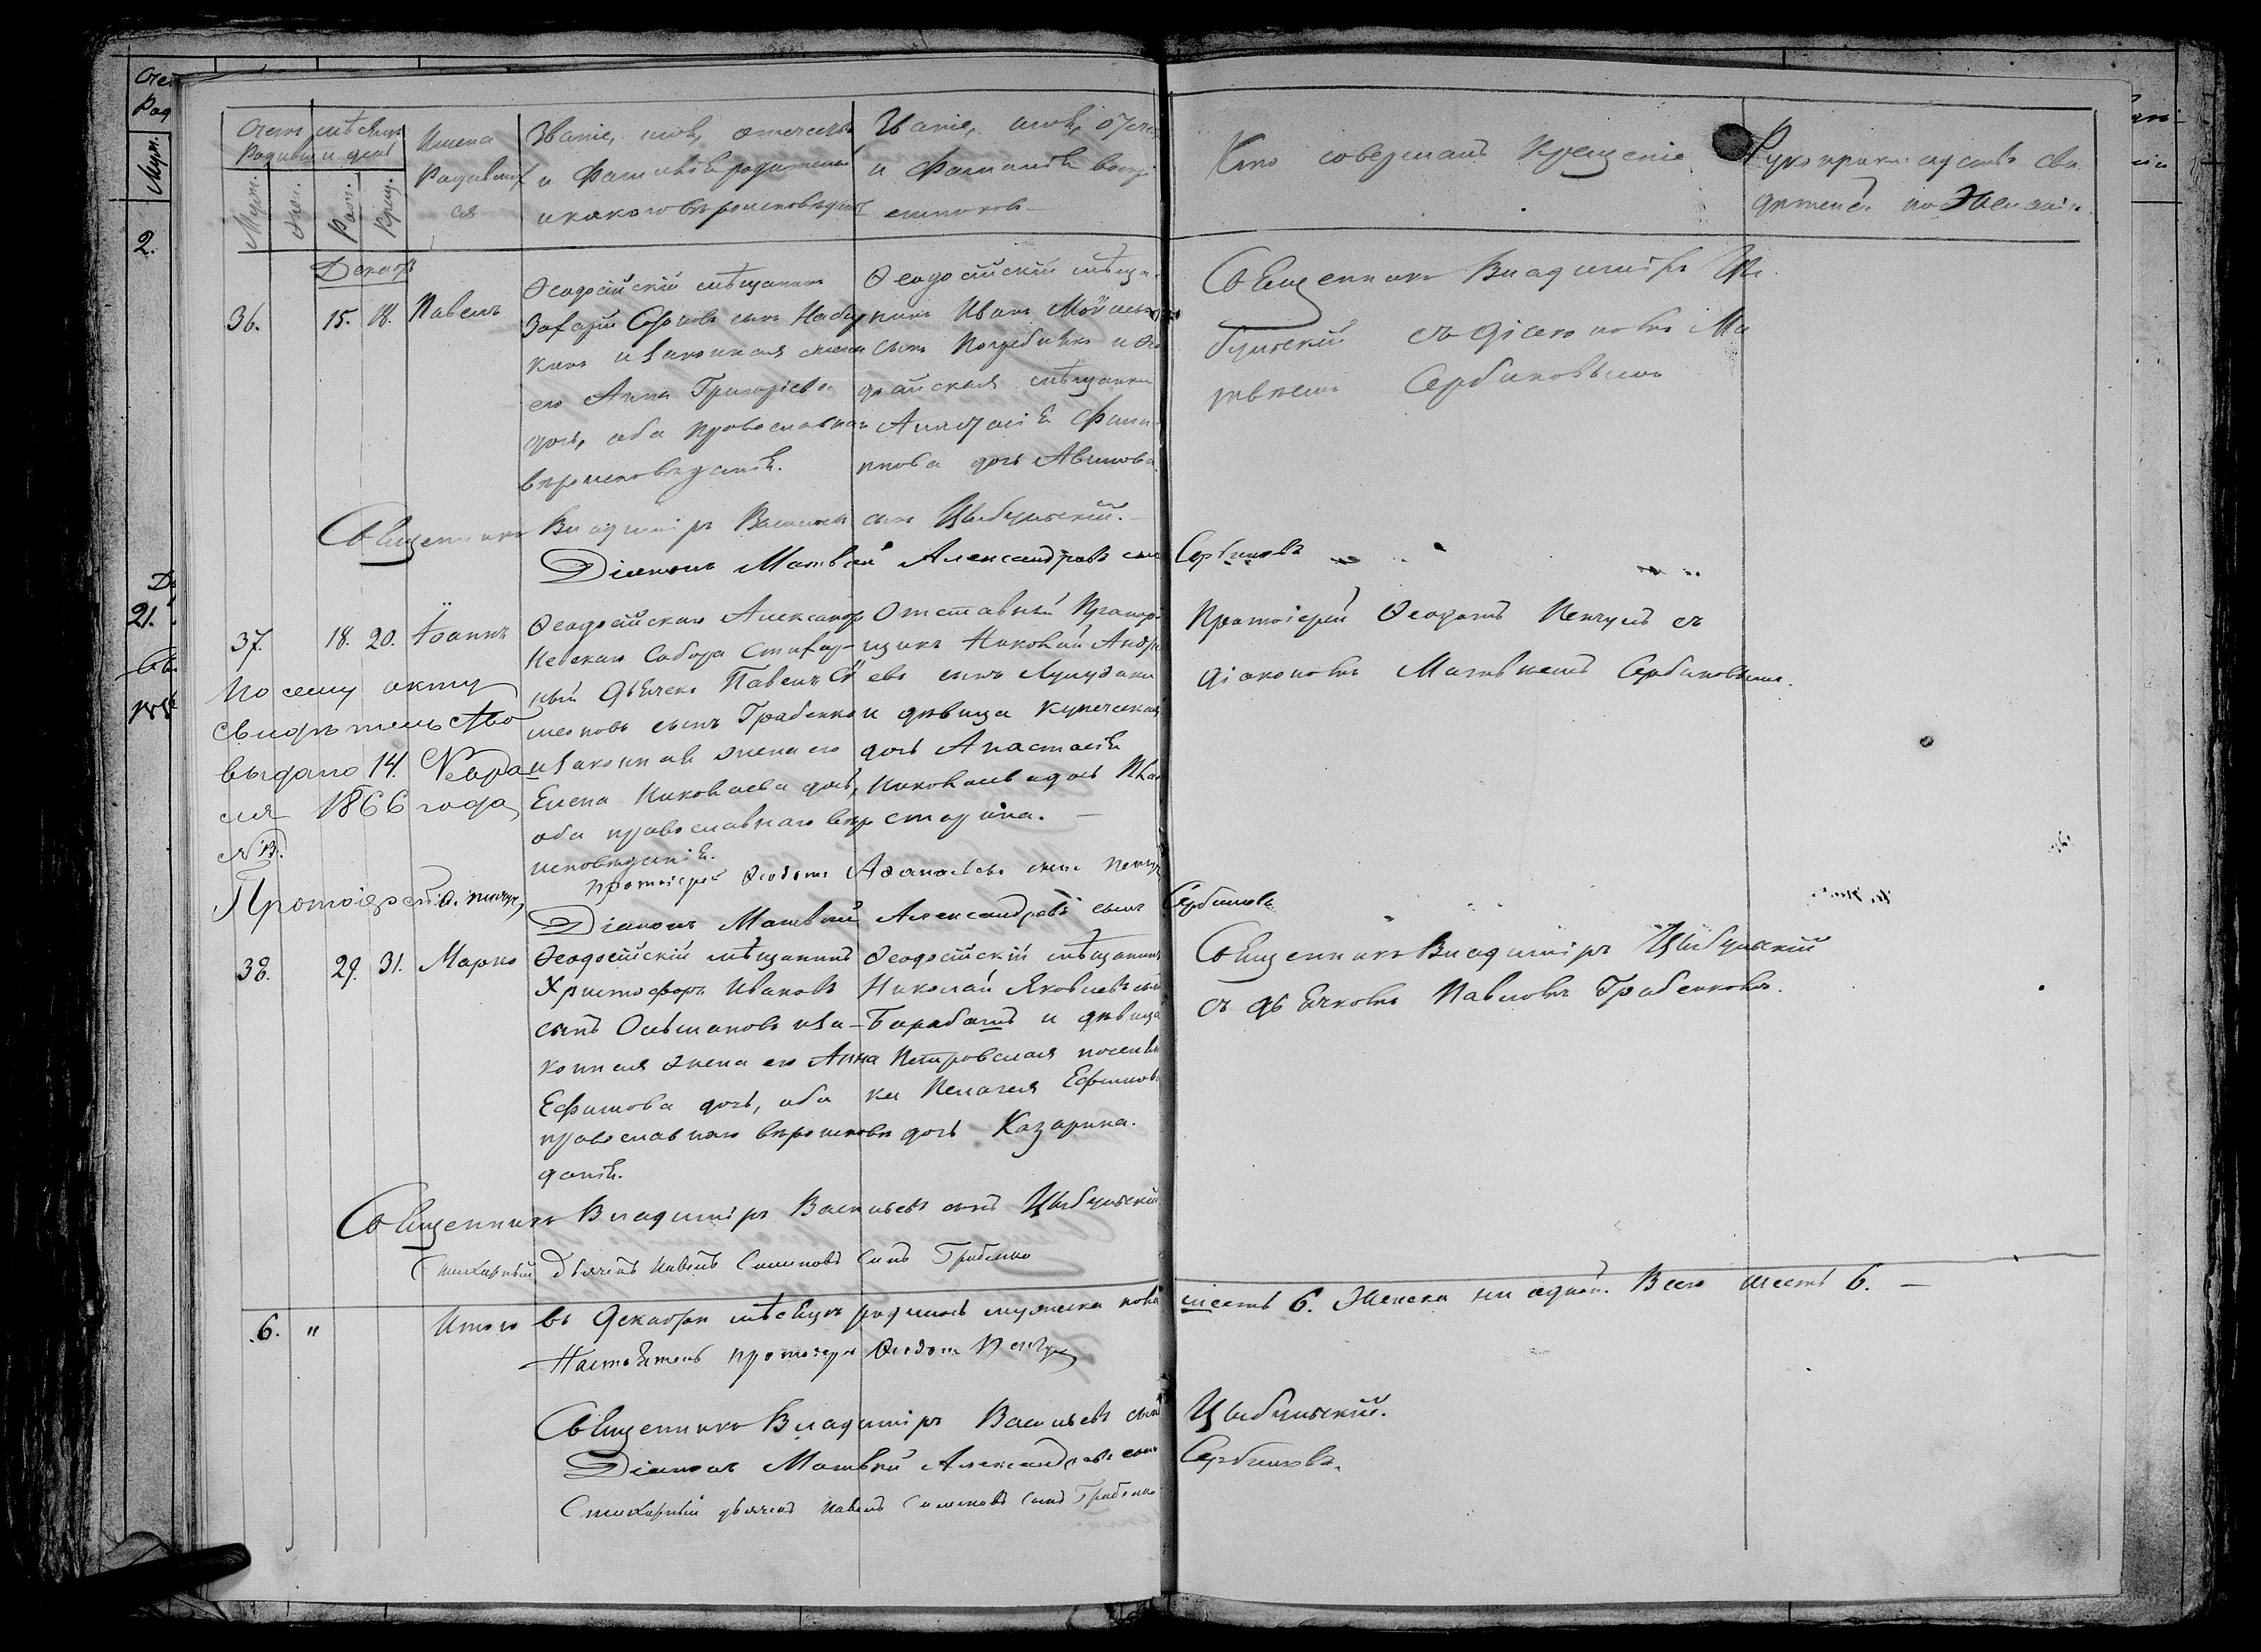 Счетъ
Родивш.
Муж.
Жен.
мѣсяцъ
и день
Рожд.
Крещ.
Имена
Родивших
ся
Званіе, имя, отчество
и Фамилія родителей
и какого вѣроисповѣданія
Званіе, имя, отче
и Фамилія воспрі
емниковъ
Кто совершалъ Крещеніе
Рукоприкладство сви
дѣтелей по Желанію
Декабрь
36.
15. 18.
Павелъ
Ѳеодосійскій мѣщанинъ
Захарій сынъ
кинъ и законная жена
его Анна Григоріева
дочь, оба православнаго
вѣроисповѣданія.
Ѳеодосійскій мѣща
нинъ Иванъ Мойсеевъ
сынъ и Ѳео
досійская мѣщанка
Анастасія Филип
пова дочь
Священникъ Владиміръ Цы
бульскій съ діакономъ Ма
твѣемъ Сербиновымъ
Священникъ Владиміръ Васильевъ сынъ Цыбульскій.
Діаконъ Матвѣй Александровъ сынъ Сербиновъ
37.
18. 20.
Іоаннъ
Ѳеодосійскаго Александро
Невскаго Собора Стихар-
ный Дьячекъ Павелъ Си
меоновъ сынъ Грабенко
и законная жена его
Елена Николаева дочь,
оба православнаго вѣро
исповѣданія.
Отставный Прапор
щикъ Николай Андре
евъ сынъ
и дѣвица купеческая
дочь Анастасія
Николаева дочь
Протоіерей Ѳеодотъ Пенчулъ съ
діакономъ Матвѣемъ Сербиновымъ.
По сему акту
свидѣтельство
выдано 14. Февра
ля 1866 года
Протоіерей Ѳ. Пенчулъ
Протоіерей Ѳеодотъ Аѳанасьевъ сынъ Пенчулъ
Діаконъ Матвѣй Александровъ сынъ Сербиновъ
38.
29. 31.
Марко
Ѳеодосійскій мѣщанинъ
Христофоръ Ивановъ
сынъ и за-
конная жена его Анна
Ефимова дочь, оба
православнаго вѣроисповѣ
данія.
Ѳеодосійскій мѣщанинъ
Николай Яковлевъ сынъ
Барабашъ и дѣвица
Петровская поселян
ка Пелагея Ефимова
дочь Казарина.
Священникъ Владиміръ Цыбульскій
съ дьячкомъ Павломъ Грабенкомъ.
Священникъ Владиміръ Васильевъ сынъ Цыбульскій
Стихарный Дьячекъ Павелъ Симеоновъ Сынъ Грабенко
6. "
Итого въ Декабрѣ мѣсяцѣ родилось мужеска пола шесть 6. Женска ни одной. Всего шесть 6. —
Настоятель протоіерей Ѳеодотъ Пенчулъ
Священникъ Владиміръ Васильевъ сынъ Цыбульскій.
Діаконъ Матвѣй Александровъ сынъ Сербиновъ.
Стихарный дьячекъ Павелъ Симеоновъ Сынъ Грабенко